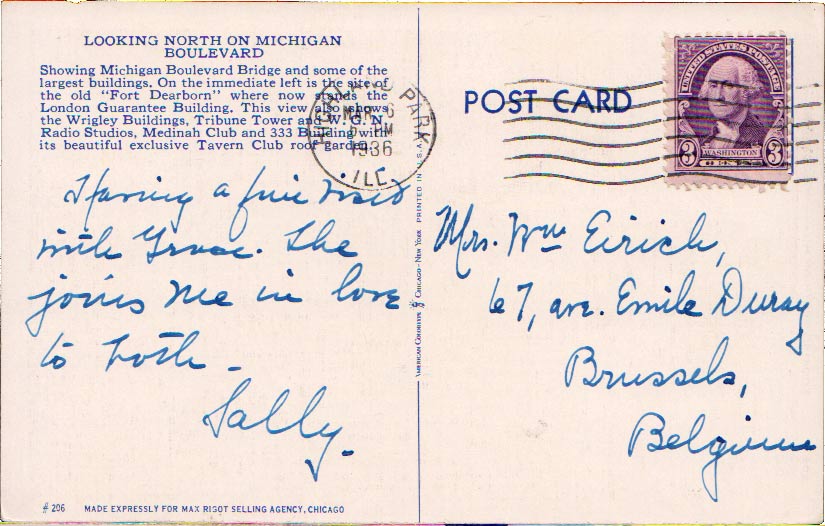 LOOKING NORTH ON MICHIGAN
BOULEVARD
Showing Michigan Boulevard Bridge and some of the
largest buildings. On the immediate left is the site of
the old "Fort Dearborn" where now stands the
London Guarantee Building. This view also shows
the Wrigley Buildings, Tribune Tower and W. G. N.
Radio Studios, Medinah Club and 333 Building with
its beautiful exclusive Tavern Club roof garden.
Having a fine visit
with Grace. She
joins me in love
to both.
Sally.
# 206 MADE EXPRESSLY FOR MAX RIGOT SELLING AGENCY, CHICAGO
AMERICAN COLORTYPE CHICAGO-NEW YORK PRINTED IN U.S.A.
HIGHLAND PARK
MAR 6
PM
1936
ILL.
POST CARD
UNITED STATES POSTAGE
WASHINGTON
3 CENTS 3
Mrs. Wm Eirich,
67, ave. Emile Duray
Brussels,
Belgium